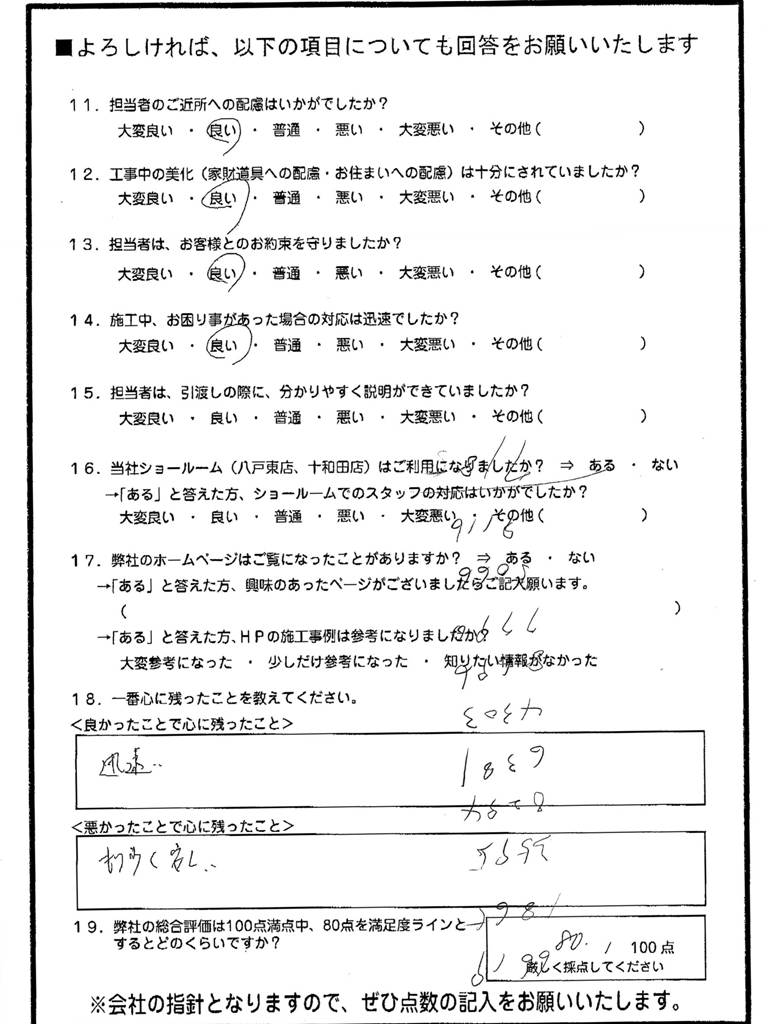 ■よろしければ、以下の項目についても回答をお願いいたします
11．担当者のご近所への配慮はいかがでしたか？
大変良い ・ 良い ・ 普通 ・ 悪い ・ 大変悪い ・ その他（　　　　　）
12．工事中の美化（家財道具への配慮・お住まいへの配慮）は十分にされていましたか？
大変良い ・ 良い ・ 普通 ・ 悪い ・ 大変悪い ・ その他（　　　　　）
13．担当者は、お客様とのお約束を守りましたか？
大変良い ・ 良い ・ 普通 ・ 悪い ・ 大変悪い ・ その他（　　　　　）
14．施工中、お困り事があった場合の対応は迅速でしたか？
大変良い ・ 良い ・ 普通 ・ 悪い ・ 大変悪い ・ その他（　　　　　）
15．担当者は、引渡しの際に、分かりやすく説明ができていましたか？
大変良い ・ 良い ・ 普通 ・ 悪い ・ 大変悪い ・ その他（　　　　　）
16．当社ショールーム（八戸東店、十和田店）はご利用になりましたか？ ⇒ ある ・ ない
→「ある」と答えた方、ショールームでのスタッフの対応はいかがでしたか？
大変良い ・ 良い ・ 普通 ・ 悪い ・ 大変悪い ・ その他（　　　　　）
17．弊社のホームページはご覧になったことがありますか？ ⇒ ある ・ ない
→「ある」と答えた方、興味のあったページがございましたらご記入願います。
（　　　　　）
→「ある」と答えた方、ＨＰの施工事例は参考になりましたか？
大変参考になった ・ 少しだけ参考になった ・ 知りたい情報がなかった
18．一番心に残ったことを教えてください。
＜良かったことで心に残ったこと＞
迅速
＜悪かったことで心に残ったこと＞
19．弊社の総合評価は100点満点中、80点を満足度ラインと
するとどのくらいですか？
80. / 100点
厳しく採点してください
※会社の指針となりますので、ぜひ点数の記入をお願いいたします。